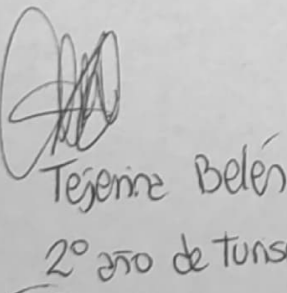 Tejerina Belén
2º año de Turis